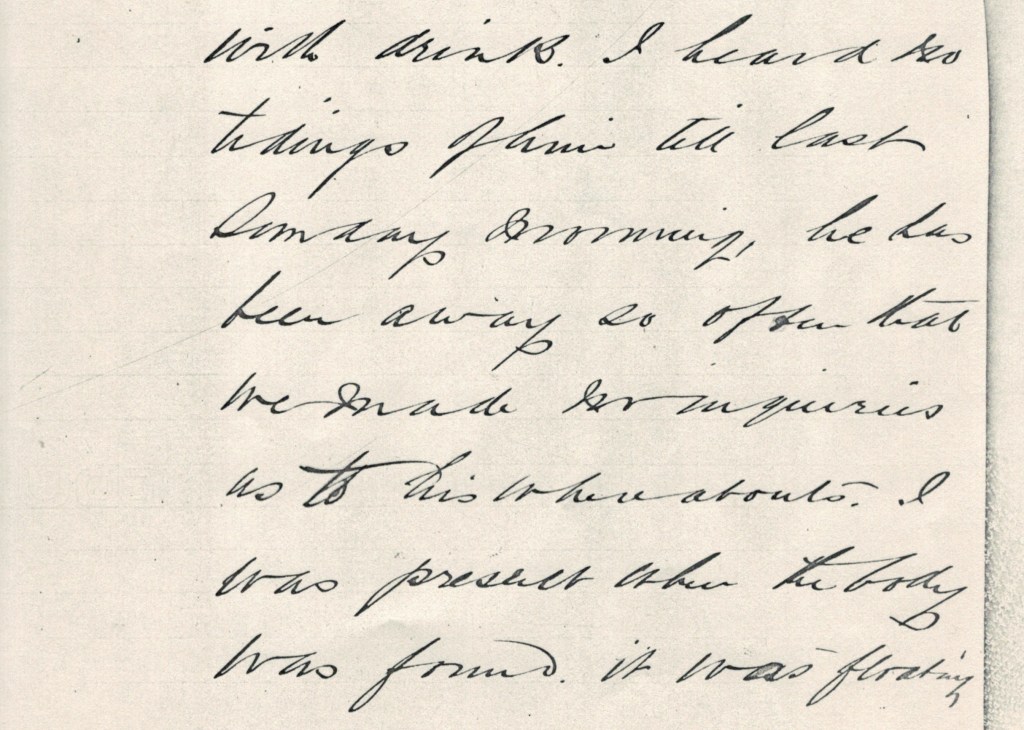 with drink. I heard no
tidings of him till last
Sunday morning, he has
been away so often that
we made no inquiries
as to his whereabouts. I
was present when the body
was found. it was floating